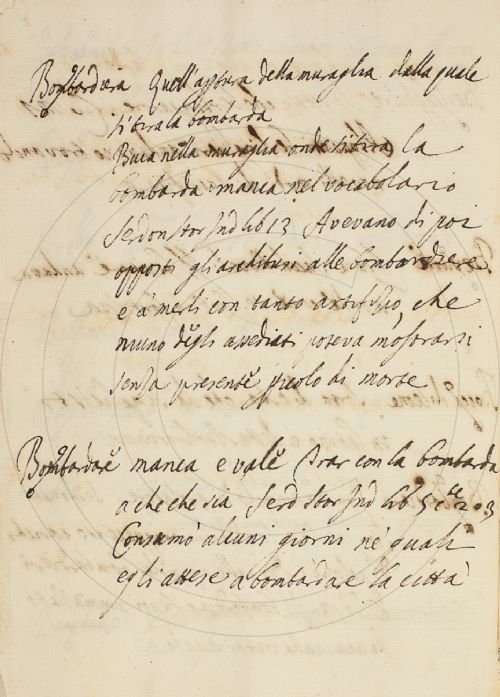 Bombardiera Quell'apptura della muraglia dalla quale
si tira la bombarda
Buca nella muraglia onde si tira la
bombarda manca nel vocabolario
Serdon Stor Ind lib 13 Avevano di poi
opposti gli archibusi alle bombardiere
e a' merli con tanto artifizio, che
niuno degli assediati poteva mostrarsi
senza presente picolo di morte
Bombardare manca e vale Tirar con la bombarda
a che che sia Serd Stor Ind lib 5 cte 203
Consumò alcuni giorni ne' quali
egli attese a bombardare la città